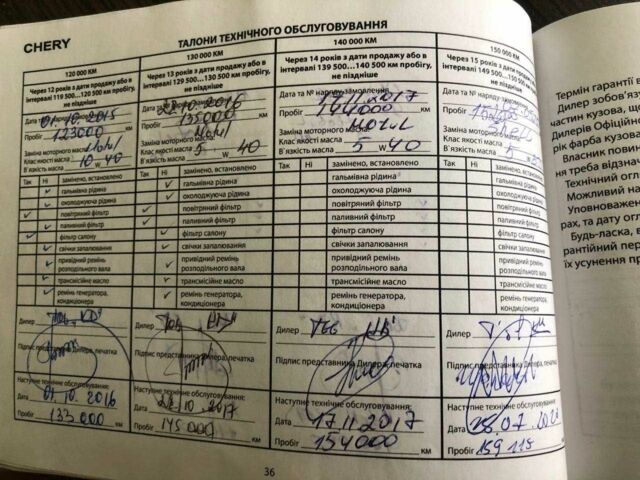 CHERY
ТАЛОНИ ТЕХНІЧНОГО ОБСЛУГОВУВАННЯ
120 000 КМ
Через 12 років з дати продажу або в
інтервалі 119 500...120 500 км пробігу,
не пізніше
01.10.2015
123000
Заміна моторного масла
Клас якості масла
В'язкість масла 10 W 40
Так Ні замінено, встановлено
гальмівна рідина
охолоджуюча рідина
повітряний фільтр
паливний фільтр
фільтр салону
свічки запалювання
привідний ремінь
розподільного вала
трансмісійне масло
ремінь генератора,
кондиціонера
Дилер
Підпис Дилера, печатка
Наступне технічне обслуговування:
Дата 01.10.2016
Пробіг 133 000 км
130 000 КМ
Через 13 років з дати продажу або в
інтервалі 129 500...130 500 км пробігу,
не пізніше
22.10.2016
135000
Заміна моторного масла
Клас якості масла
В'язкість масла 5 W 40
Так Ні замінено, встановлено
гальмівна рідина
охолоджуюча рідина
повітряний фільтр
паливний фільтр
фільтр салону
свічки запалювання
привідний ремінь
розподільного вала
трансмісійне масло
ремінь генератора,
кондиціонера
Дилер
Підпис представника Дилера, печатка
Наступне технічне обслуговування:
Дата 22.10.2017
Пробіг 145 000 км
140 000 КМ
Через 14 років з дати продажу або в
інтервалі 139 500...140 500 км пробігу,
не пізніше
Дата та № наряду-замовлення
2017
144000
Заміна моторного масла
Клас якості масла
В'язкість масла 5 W 40
Так Ні замінено, встановлено
гальмівна рідина
охолоджуюча рідина
повітряний фільтр
паливний фільтр
фільтр салону
свічки запалювання
привідний ремінь
розподільного вала
трансмісійне масло
ремінь генератора,
кондиціонера
Дилер
Підпис представника Дилера, печатка
Наступне технічне обслуговування:
Дата 17.11.2017
Пробіг 154000 км
150 000 КМ
Через 15 років з дати продажу
інтервалі 149 500...150 500
не пізніше
Дата та № наряду
Заміна моторного масла
Клас якості масла
В'язкість масла 5 W
Так Ні замінено, встановлено
гальмівна рідина
охолоджуюча рідина
повітряний фільтр
паливний фільтр
фільтр салону
свічки запалювання
привідний ремінь
розподільного вала
трансмісійне масло
ремінь генератора,
кондиціонера
Дилер
Підпис представника Дилера,
Наступне технічне обслуговування
Дата
Пробіг
36
Термін гарантії
Дилер зобов'яз
частин кузова,
Дилерів Офіційно
рік фарба кузова
Власник повин
ня треба відзна
Технічний огл
Можливий на
Уповноважен
рах, та дату ог
Будь-ласка,
рантійний пер
їх усунення пр